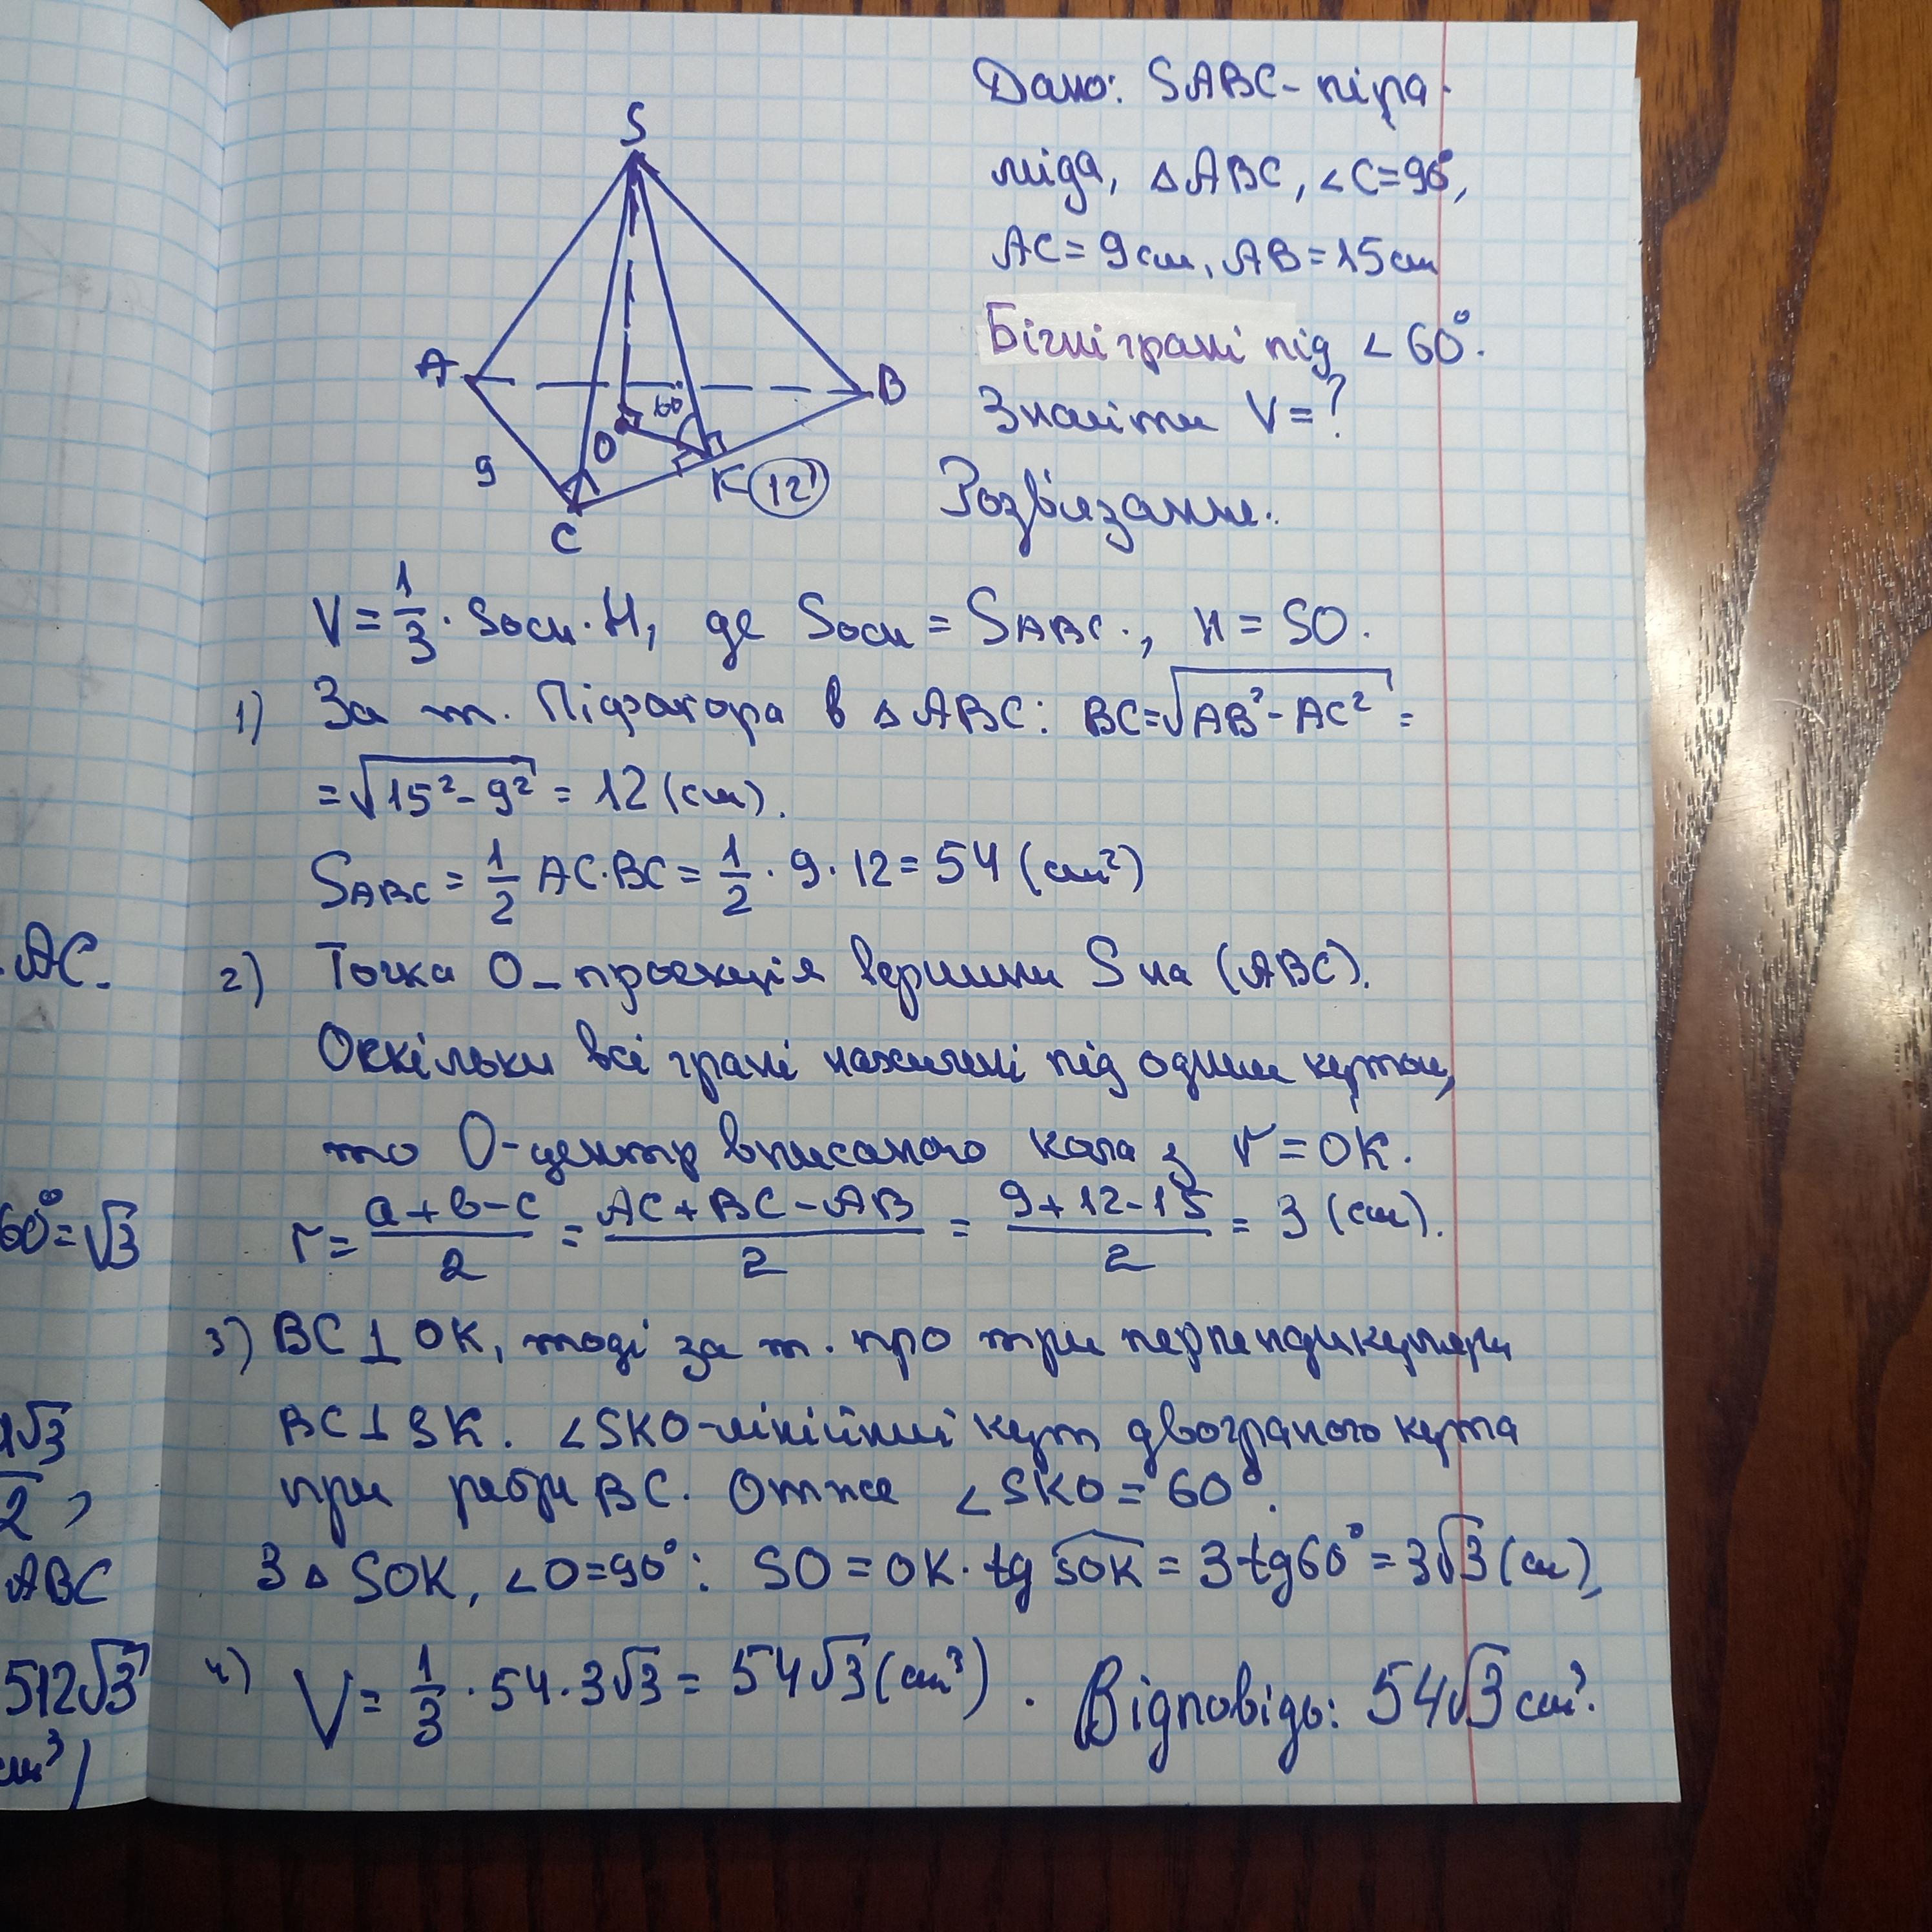 Дано: SABC – піра-
міда, △ABC, ∠C=90°,
AC = 9 см, AB = 15 см
Бічні грані під ∠ 60°.
Знайти V = ?
Розв'язання.
S
A
B
60°
O
9
K (12)
C
V = 1/3 · Sосн · H, де Sосн = S_ABC., H = SO.
1) За т. Піфагора в △ABC: BC = √(AB² - AC²) =
= √(15² - 9²) = 12 (см).
S_ABC = 1/2 AC·BC = 1/2 · 9 · 12 = 54 (см²)
2) Точка O – проекція вершини S на (ABC).
Оскільки всі грані нахилені під одним кутом,
то O-центр вписаного кола з r = OK.
r = (a+b-c)/2 = (AC+BC-AB)/2 = (9+12-15)/2 = 3 (см).
3) BC ⊥ OK, тоді за т. про три перпендикуляри
BC ⊥ SK. ∠SKO-лінійний кут двогранного кута
при ребрі BC. Отже ∠SKO = 60°.
З △ SOK, ∠O=90°: SO = OK · tg SOK = 3·tg60° = 3√3 (см),
4) V = 1/3 · 54 · 3√3 = 54√3 (см³). Відповідь: 54√3 см³.
AC.
60° = √3
1√3
2 ,
ABC
512√3
см³)